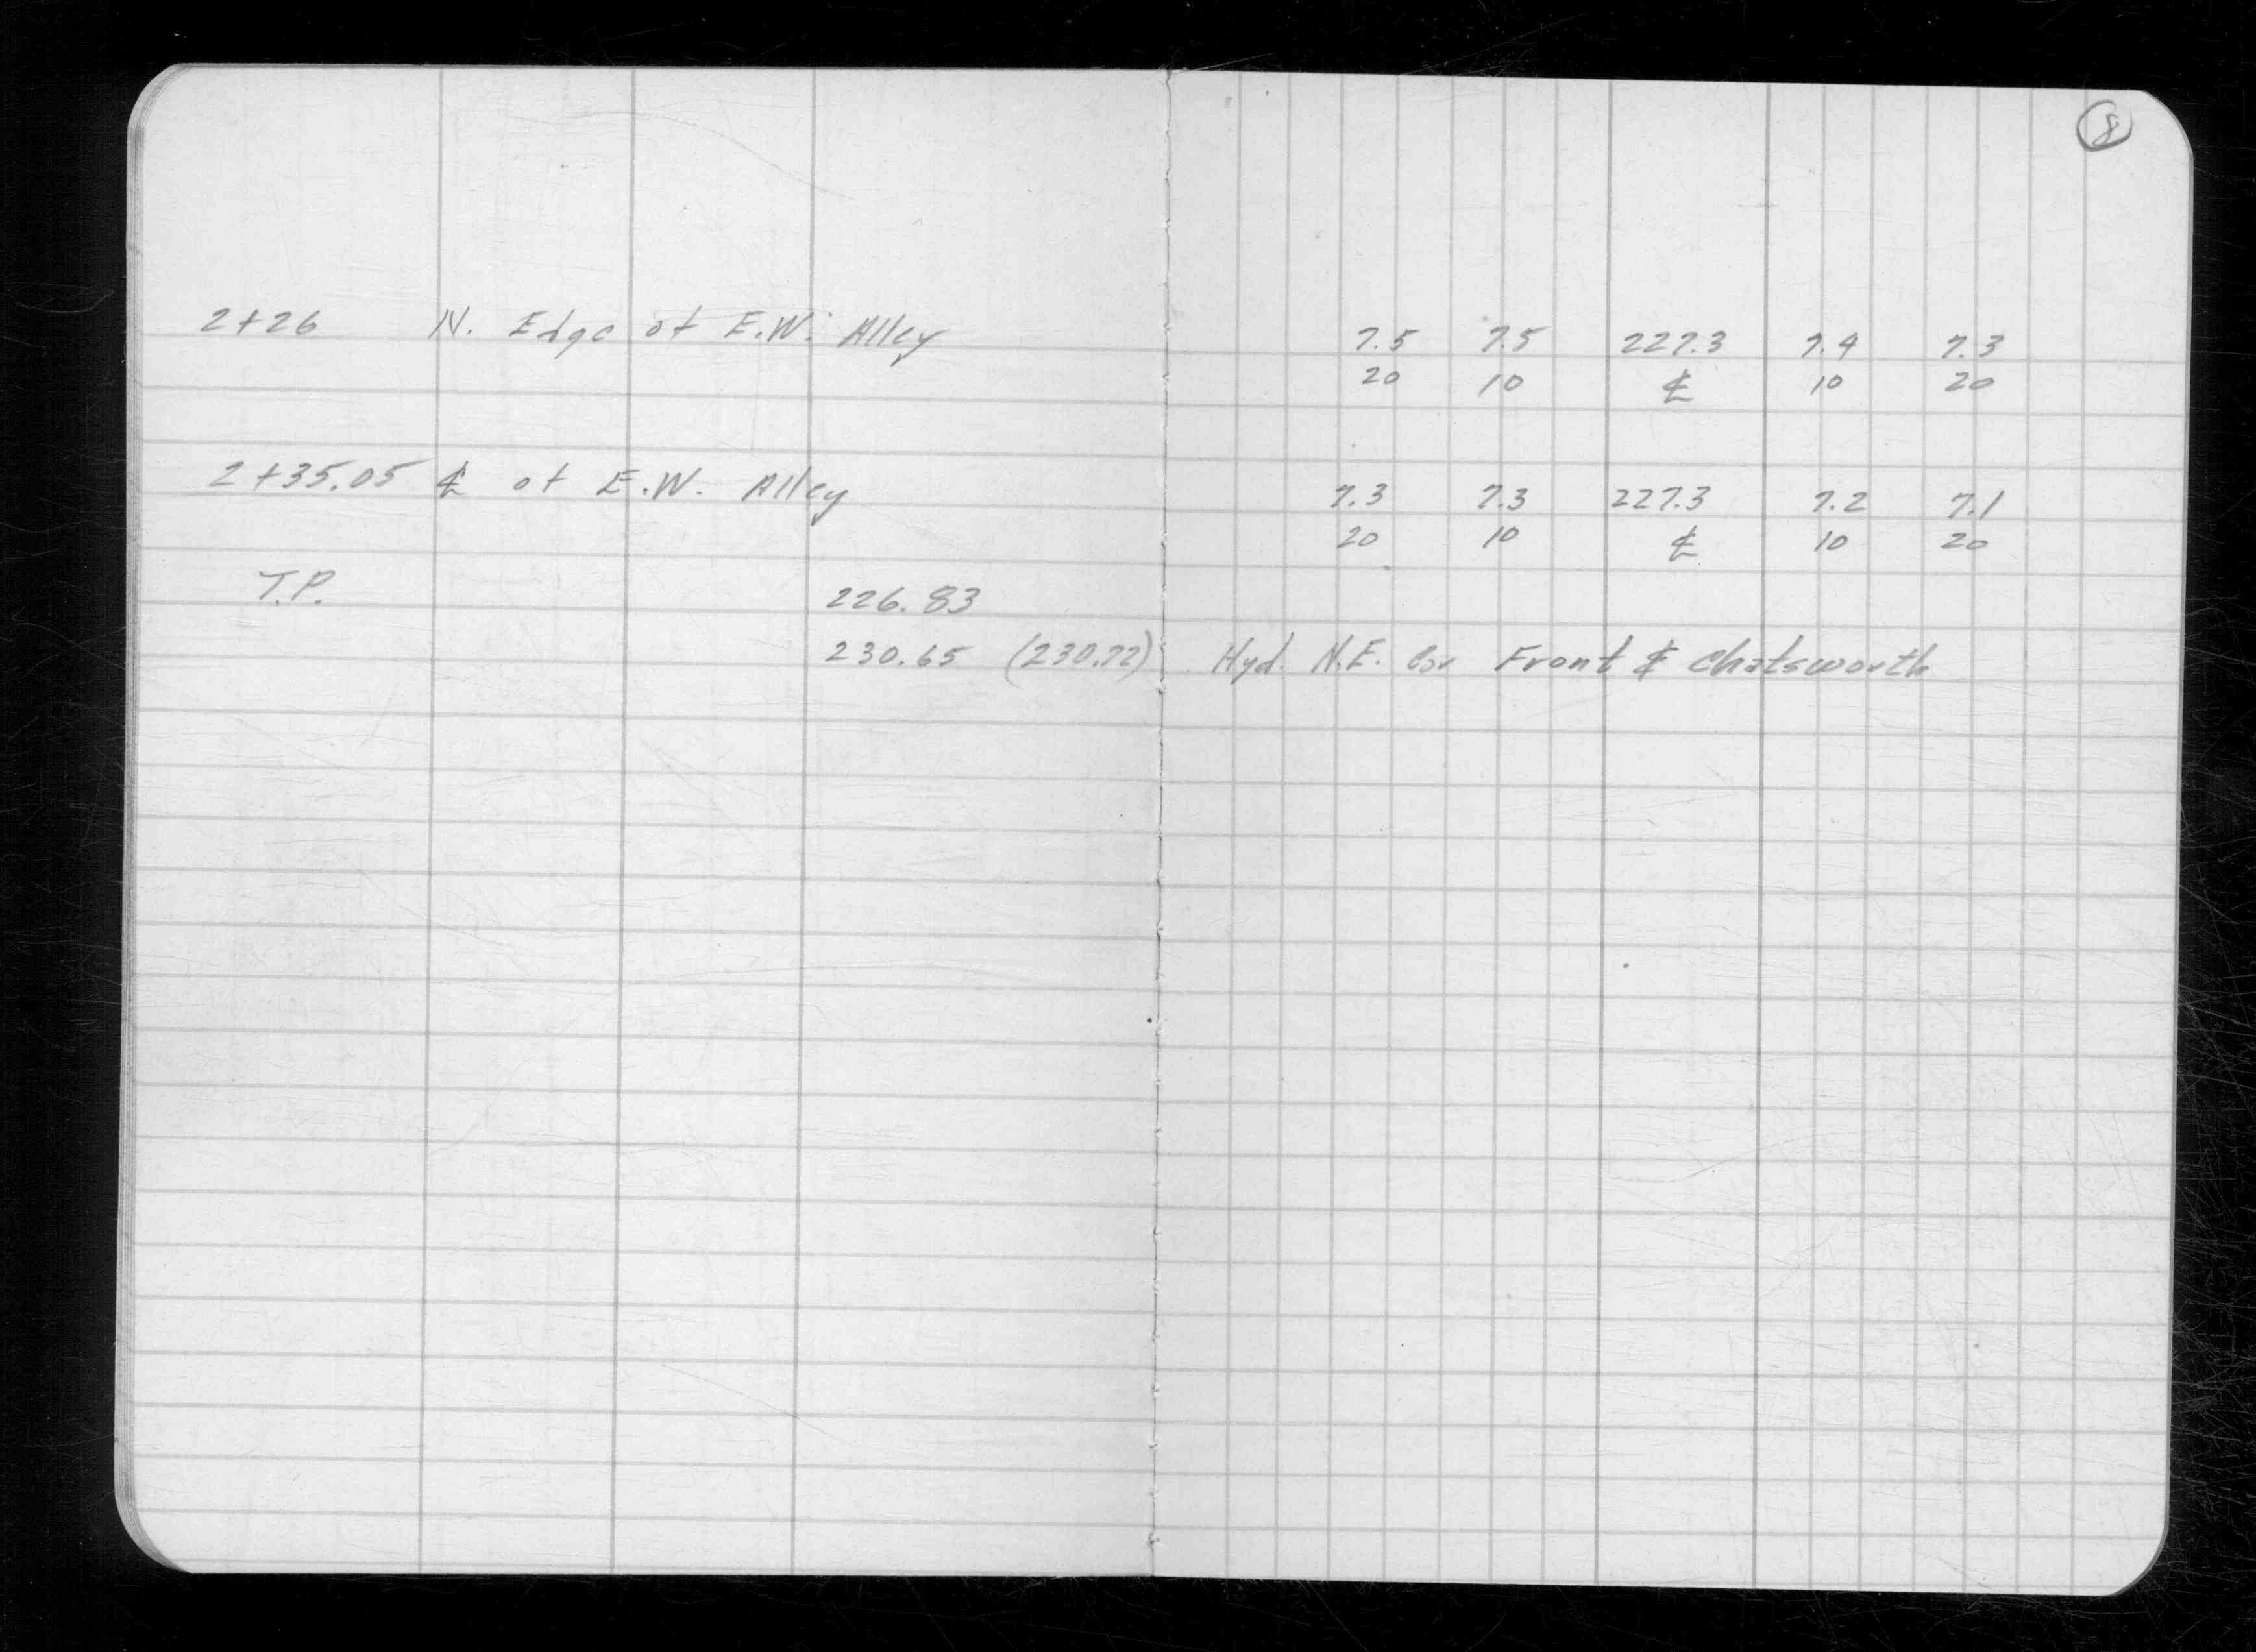 8
2+26 N. Edge of E.W. Alley 7.5 7.5 227.3 7.4 7.3
20 10 ℄ 10 20
2+35.05 ℄ of E.W. Alley 7.3 7.3 227.3 7.2 7.1
20 10 ℄ 10 20
T.P. 226.83
230.65 (230.72) Hyd. N.E. Cor Front & Chatsworth